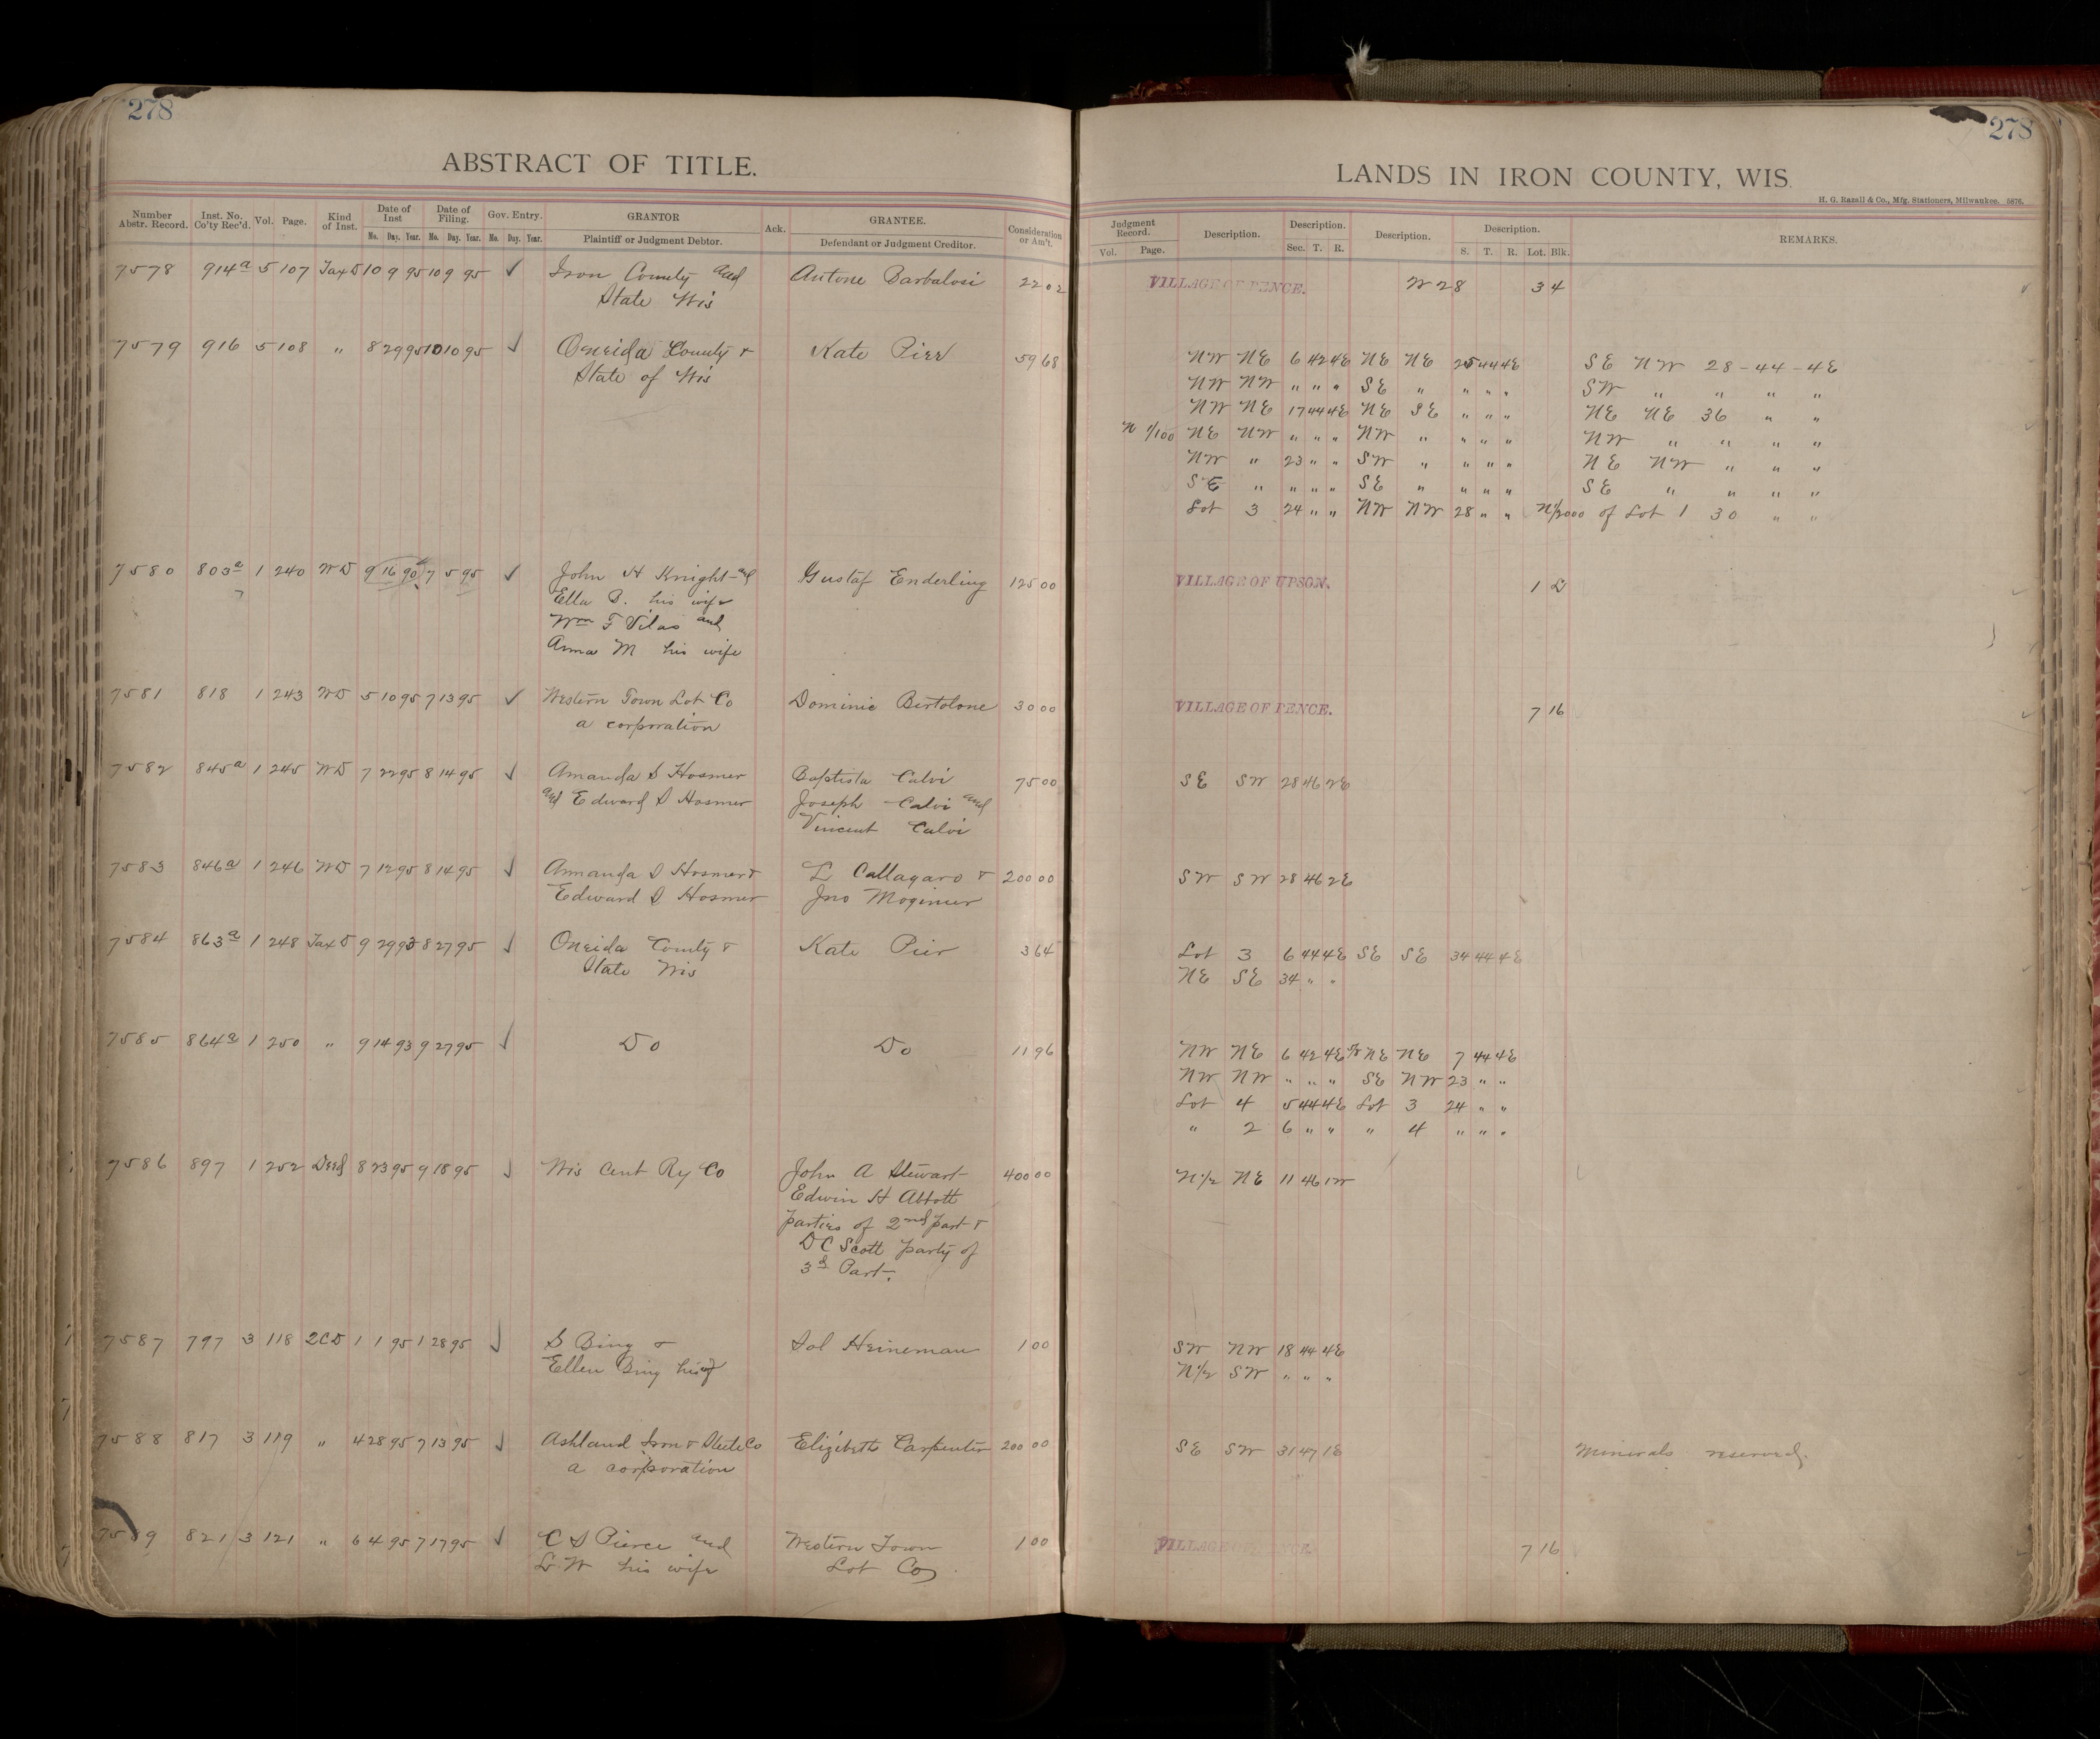 278
ABSTRACT OF TITLE.
Number Abstr. Record. Inst. No. Co'ty Rec'd. Vol. Page. Kind of Inst. Date of Inst Mo. Day. Year. Date of Filing. Mo. Day. Year. Gov. Entry. Mo. Day. Year. GRANTOR Plaintiff or Judgment Debtor. Ack. GRANTEE. Defendant or Judgment Creditor. Consideration or Am't.
7578 914a 5 107 Tax D 10 9 95 10 9 95 ✓ Iron County and Antone Barbalosi 22 02
State Wis
7579 916 5 108 " 8 29 95 10 10 95 ✓ Oneida County & Kate Pier 59 68
State of Wis
7580 803a 1 240 WD 9 16 90 7 5 95 ✓ John H Knight and Gustaf Enderling 125 00
Ella B. his wife
Wm F Vilas and
Anna M his wife
7581 818 1 243 WD 5 10 95 7 13 95 ✓ Western Town Lot Co Dominic Bertolone 30 00
a corporation
7582 845a 1 245 WD 7 22 95 8 14 95 ✓ Amanda S Hosmer Baptista Calvi 75 00
and Edward S Hosmer Joseph Calvi and
Vincent Calvi
7583 846a 1 246 WD 7 12 95 8 14 95 ✓ Amanda S Hosmer & L Callagaro & 200 00
Edward S Hosmer Jno Moginier
7584 863a 1 248 Tax D 9 29 93 8 27 95 ✓ Oneida County & Kate Pier 3 64
State Wis
7585 864a 1 250 " 9 14 93 9 27 95 ✓ Do Do 11 96
7586 897 1 252 Deed 8 23 95 9 18 95 ✓ Wis Cent Ry Co John A Stewart 400 00
Edwin H Abbott
parties of 2nd part &
DC Scott party of
3d Part.
7587 797 3 118 2CD 1 1 95 1 28 95 ✓ S Bing & Sol Heineman 1 00
Ellen Bing his wf
7588 817 3 119 " 4 28 95 7 13 95 ✓ Ashland Iron & Steele Co Elizibeth Carpenter 200 00
a corporation
7589 821 3 121 " 6 4 95 7 17 95 ✓ C S Pierce and Western Town 1 00
L. W his wife Lot Co
278
LANDS IN IRON COUNTY, WIS.
H. G. Razall & Co., Mfg. Stationers, Milwaukee. 5876.
Judgment Record. Vol. Page. Description. Description. Sec. T. R. Description. Description. S. T. R. Lot. Blk. REMARKS.
VILLAGE OF PENCE. W 28 3 4
NW NE 6 42 4E NE NE 25 44 4E SE NW 28-44-4E
NW NW " " " SE " " " " SW " " " "
NW NE 17 44 4E NE SE " " " NE NE 36 " "
N 1/100 NE NW " " " NW " " " " NW " " " "
NW " 23 " " SW " " " " NE NW " " "
SE " " " " SE " " " " SE " " " "
Lot 3 24 " " NW NW 28 " " N1/2000 of Lot 1 30 " "
VILLAGE OF UPSON. 1 D
VILLAGE OF PENCE. 7 16
SE SW 28 46 2E
SW SW 28 46 2E
Lot 3 6 44 4E SE SE 34 44 4E
NE SE 34 " "
NW NE 6 42 4E NE NE 7 44 4E
NW NW " " " SE NW 23 " "
Lot 4 5 44 4E Lot 3 24 " "
" 2 6 " " " 4 " " "
N1/2 NE 11 46 1W
SW NW 18 44 4E
N1/2 SW " " "
SE SW 31 47 1E Minerals reserved.
VILLAGE OF PENCE. 7 16